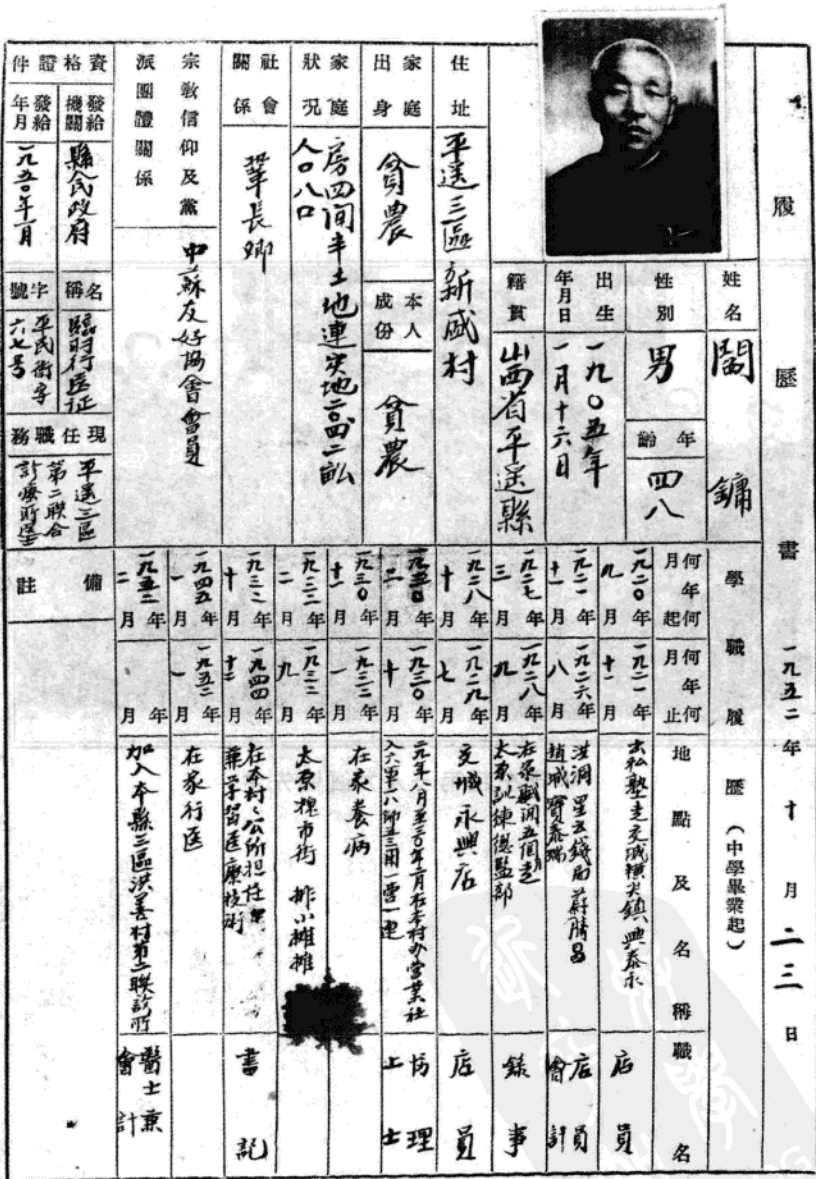 履歷書 一九五二年十月二三日
姓名 閻鏞
性別 男 年齡 四八
出生年月日 一九〇五年一月十六日
籍貫 山西省平遥縣
住址 平遥三區新盛村
家庭出身 貧農 本人成份 貧農
家庭狀況 房四间半土地連灾地 二畝
人口八口
社會關係 鞏長卿
宗教信仰及黨派團體關係 中蘇友好協會會員
資格證件 發給機關 縣民政府 名稱 臨时行医証
發給年月 一九五〇年一月 字號 平民衛字六七号
現任職務 平遥三區第二联合診療所醫
學職履歷（中學畢業起）
何年何月起 何年何月止 地點及名稱 職名
一九二〇年九月 一九二一年十一月 出私塾走交城横尖鎮興泰永 店員
一九二一年十一月 一九二六年八月 洪洞星五錢局蔚勝昌
趙城寶泰瑞 店員會計
一九二七年三月 一九二八年九月 在家賦闲五個月走
太原訓練總監部 錄事
一九二八年十月 一九二九年七月 交城永興店 店員
一九三〇年二月 一九三〇年十月 元年八月至三〇年二月在本村办营業社
入六軍八師五三團一营一連 协理 上士
一九三〇年十一月 一九三二年一月 在家養病
一九三二年二月 一九三二年九月 太原槐市街 排小摊摊
一九三二年十月 一九四四年十二月 在本村公所担任
業学習医療技術 書記
一九四五年一月 一九五二年一月 在家行医
一九五二年二月 年 月 加入本縣三區洪善村第二聯診所 醫士兼會計
備註